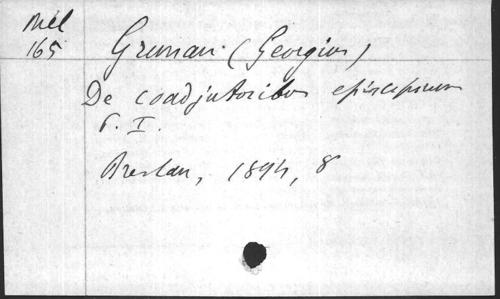 Mél
165
Gruman (Georgius)
De coadjutoribus episcoporum
P. I.
Breslau, 1894, 8